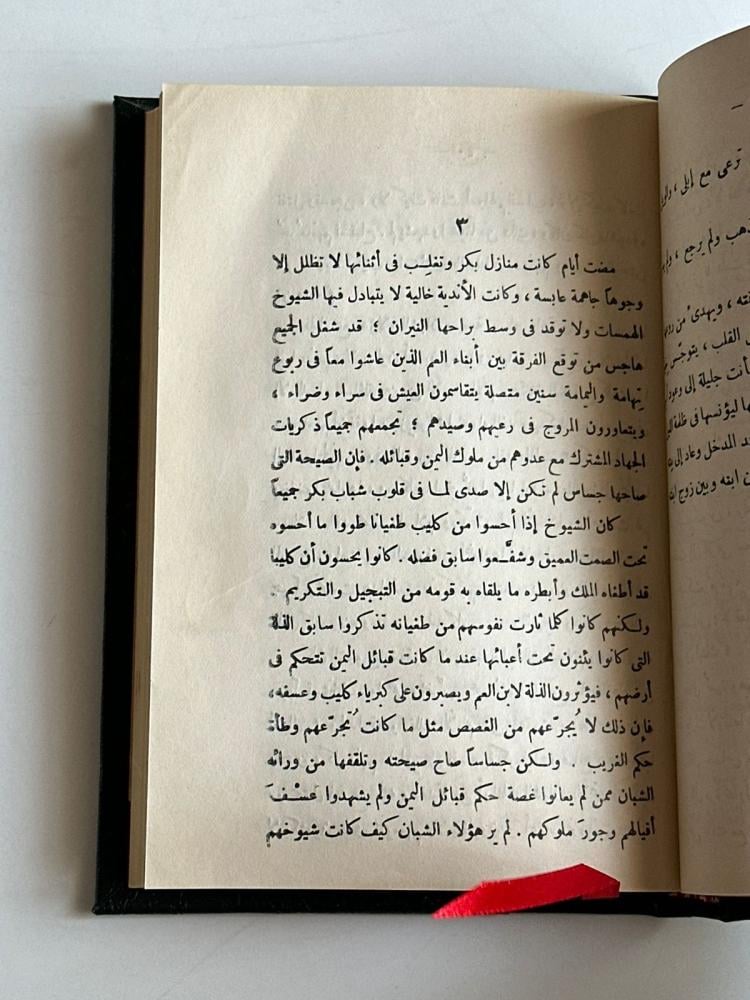 ٣
مضت أيام كانت منازل بكر وتغلِب فى أثنائها لا تظلل إلا
وجوهاً جاهمة عابسة ، وكانت الأندية خالية لا يتبادل فيها الشيوخ
الهمسات ولا توقد فى وسط براحها النيران ؛ قد شغل الجميع
هاجس من توقع الفرقة بين أبناء العم الذين عاشوا معاً فى ربوع
تِهامة واليمامة سنين متصلة يتقاسمون العيش فى سراء وضراء ،
ويتعاورون المروج فى رعيهم وصيدهم ؛ تجمعهم جميعاً ذكريات
الجهاد المشترك مع عدوهم من ملوك اليمن وقبائله . فإن الصيحة التى
صاحها جساس لم تكن إلا صدى لما فى قلوب شباب بكر جميعاً
كان الشيوخ إذا أحسوا من كليب طغيانا طووا ما أحسوه
تحت الصمت العميق وشفَّعوا سابق فضله . كانوا يحسون أن كليبا
قد أطغاه الملك وأبطره ما يلقاه به قومه من التبجيل والتكريم .
ولكنهم كانوا كلما ثارت نفوسهم من طغيانه تذكروا سابق الذلة
التى كانوا يئنون تحت أعبائها عند ما كانت قبائل اليمن تتحكم فى
أرضهم ، فيؤثرون الذلة لابن العم ويصبرون على كبرياء كليب وعسفه،
فإن ذلك لا يُجرّعهم من الغصص مثل ما كانت تُجرّعهم وطأة
حكم الغريب . ولكن جساساً صاح صيحته وتلقفها من ورائه
الشبان ممن لم يعانوا غصة حكم قبائل اليمن ولم يشهدوا عسْفَ
أقيالهم وجورَ ملوكهم . لم ير هؤلاء الشبان كيف كانت شيوخهم
ترعى مع إبلى ،
ذهب ولم يرجع ،
ويهدى من
القلب ، يتوجّس
جليلة إلى
ليؤنسها فى ظلمة
المدخل وعاد إلى
ابنته وبين زوج